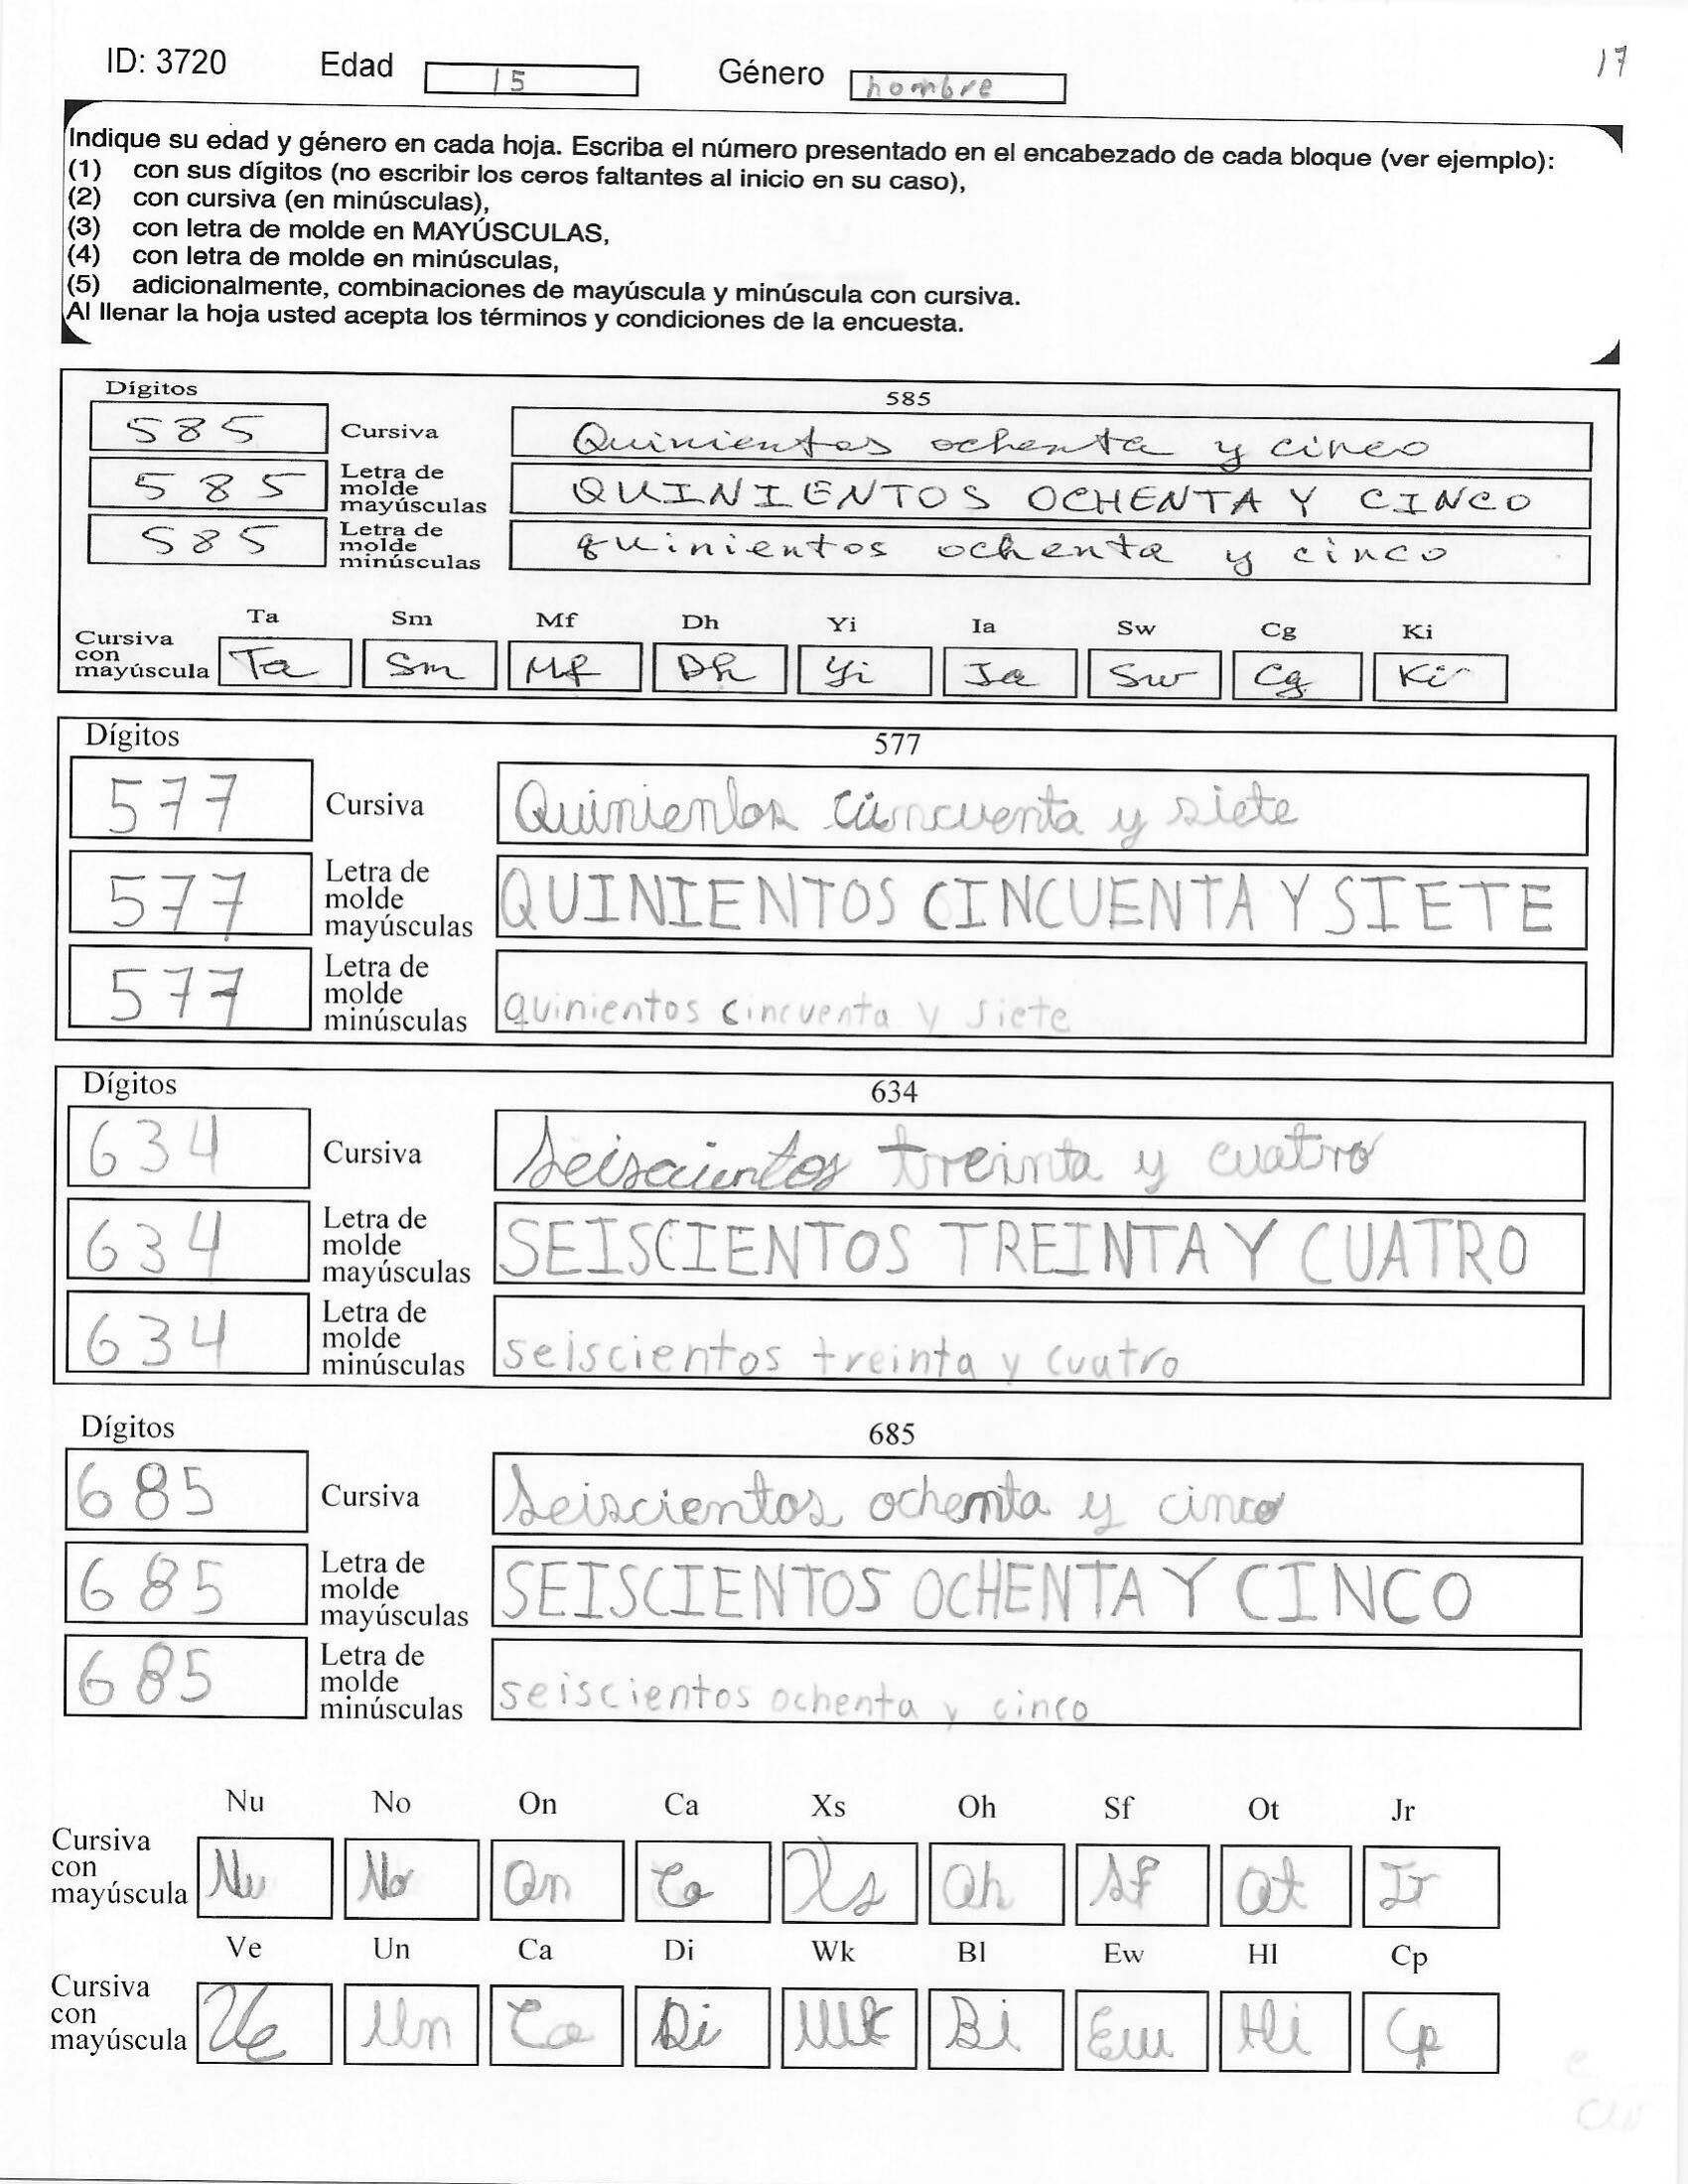 ID: 3720 Edad 15 Género hombre 17
Indique su edad y género en cada hoja. Escriba el número presentado en el encabezado de cada bloque (ver ejemplo):
(1) con sus dígitos (no escribir los ceros faltantes al inicio en su caso),
(2) con cursiva (en minúsculas),
(3) con letra de molde en MAYÚSCULAS,
(4) con letra de molde en minúsculas,
(5) adicionalmente, combinaciones de mayúscula y minúscula con cursiva.
Al llenar la hoja usted acepta los términos y condiciones de la encuesta.
Dígitos 585
585 Cursiva Quinientos ochenta y cinco
585 Letra de molde mayúsculas QUINIENTOS OCHENTA Y CINCO
585 Letra de molde minúsculas quinientos ochenta y cinco
Ta Sm Mf Dh Yi Ia Sw Cg Ki
Cursiva con mayúscula Ta Sm Mf Dh Yi Ia Sw Cg Ki
Dígitos 577
577 Cursiva Quinientos cincuenta y siete
577 Letra de molde mayúsculas QUINIENTOS CINCUENTA Y SIETE
577 Letra de molde minúsculas quinientos cincuenta y siete
Dígitos 634
634 Cursiva Seiscientos treinta y cuatro
634 Letra de molde mayúsculas SEISCIENTOS TREINTA Y CUATRO
634 Letra de molde minúsculas seiscientos treinta y cuatro
Dígitos 685
685 Cursiva Seiscientos ochenta y cinco
685 Letra de molde mayúsculas SEISCIENTOS OCHENTA Y CINCO
685 Letra de molde minúsculas seiscientos ochenta y cinco
Nu No On Ca Xs Oh Sf Ot Jr
Cursiva con mayúscula Nu No On Ca Xs Oh Sf Ot Jr
Ve Un Ca Di Wk Bl Ew Hl Cp
Cursiva con mayúscula Ve Un Ca Di Wk Bi Ew Hi Cp